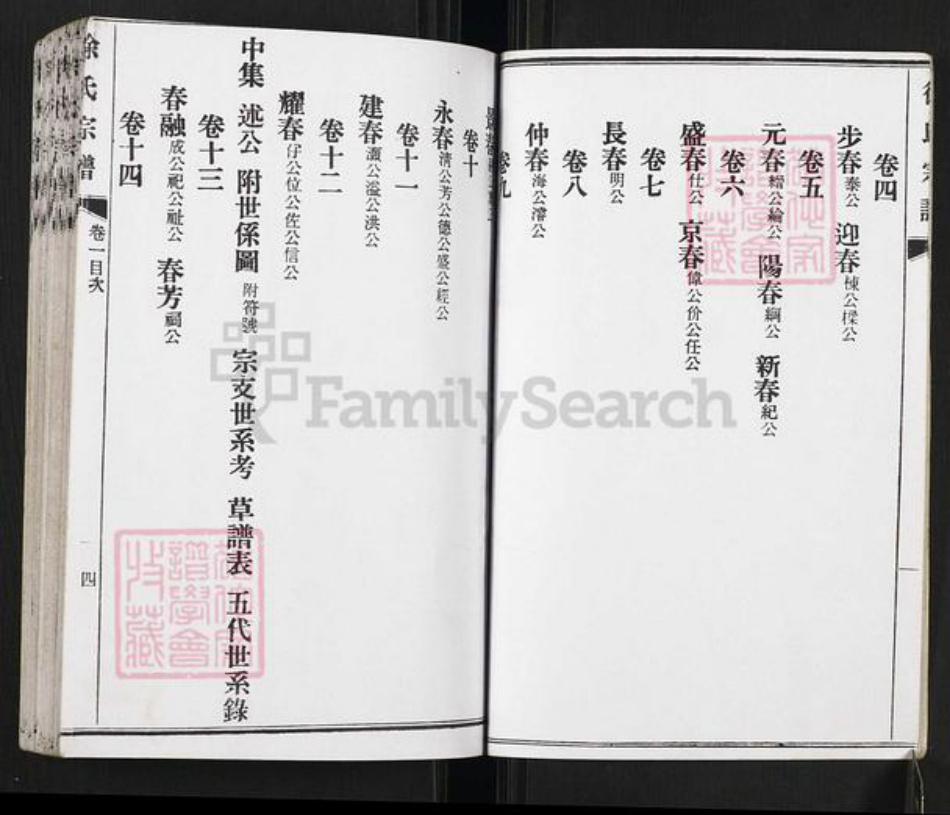 卷四
步春 泰公 迎春 棟公樑公
卷五
元春 縉公綸公 陽春 綱公 新春 紀公
卷六
盛春 仕公 京春 偉公价公任公
卷七
長春 明公
卷八
仲春 海公濬公
卷九
卷十
永春 清公芳公德公盛公經公
卷十一
建春 灝公溢公洪公
卷十二
耀春 仔公位公佐公信公
中集 述公 附世係圖 附符號 宗支世系考 草譜表 五代世系錄
卷十三
春融 成公祀公祉公 春芳 祠公
卷十四
徐氏宗譜 卷一目次 四
FamilySearch